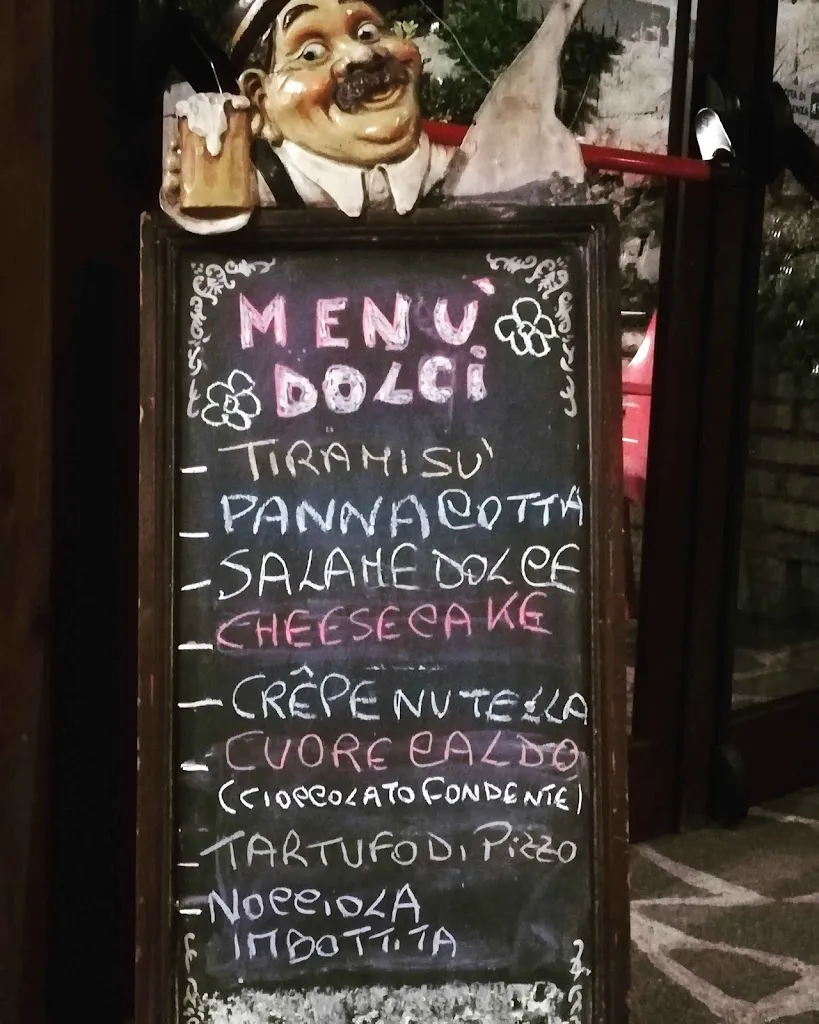 MENÙ
DOLCI
- TIRAMISU'
- PANNA COTTA
- SALAME DOLCE
- CHEESECAKE
- CRÊPE NUTELLA
- CUORE CALDO
(CIOCCOLATO FONDENTE)
- TARTUFO DI PIZZO
- NOCCIOLA
IMBOTTITA